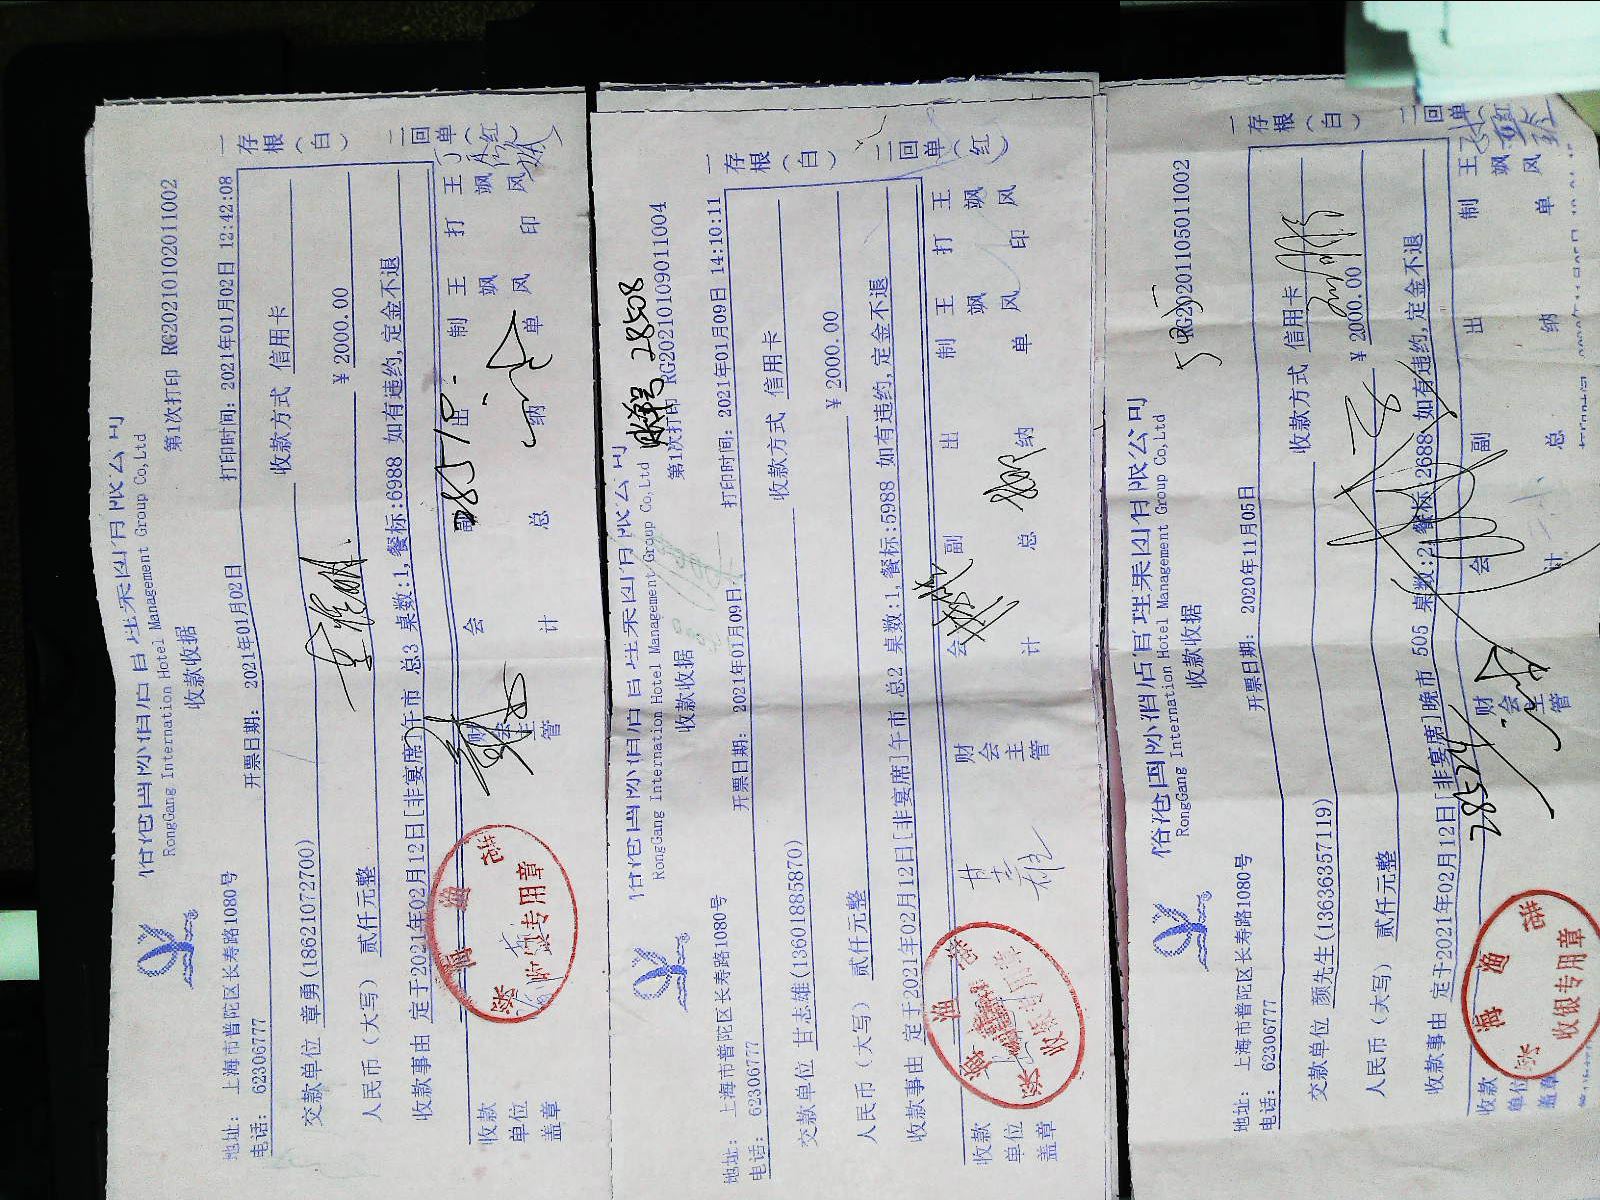 国际酒店管理集团有限公司
RongGang International Hotel Management Group Co,Ltd
收款收据
第1次打印 RG20210102011002
地址: 上海市普陀区长寿路1080号
电话: 62306777
开票日期: 2021年01月02日
打印时间: 2021年01月02日 12:42:08
交款单位 章勇(18621072700)
收款方式 信用卡
人民币(大写) 贰仟元整
¥ 2000.00
收款事由 定于2021年02月12日[非宴席]午市 总3 桌数:1,餐标:6988 如有违约,定金不退
收款单位盖章
财会主管
会计
副总
出纳
制单
王飒风
打印
王飒风
一存根(白)
二回单(红)
收银专用章
国际酒店管理集团有限公司
RongGang International Hotel Management Group Co,Ltd
账单号 28508
收款收据
第1次打印 RG20210109011004
地址: 上海市普陀区长寿路1080号
电话: 62306777
开票日期: 2021年01月09日
打印时间: 2021年01月09日 14:10:11
交款单位 甘志雄(13601885870)
收款方式 信用卡
人民币(大写) 贰仟元整
¥ 2000.00
收款事由 定于2021年02月12日[非宴席]午市 总2 桌数:1,餐标:5988 如有违约,定金不退
收款单位盖章
财会主管
会计
副总
出纳
制单
王飒风
打印
王飒风
一存根(白)
二回单(红)
国际酒店管理集团有限公司
RongGang International Hotel Management Group Co,Ltd
收款收据
RG20201105011002
地址: 上海市普陀区长寿路1080号
电话: 62306777
开票日期: 2020年11月05日
交款单位 颜先生(13636357119)
收款方式 信用卡
人民币(大写) 贰仟元整
¥ 2000.00
收款事由 定于2021年02月12日[非宴席]晚市 505 桌数:2,餐标:2688 如有违约,定金不退
收款单位盖章
财会主管
会计
副总
出纳
制单
王飒风
一存根(白)
二回单
收银专用章